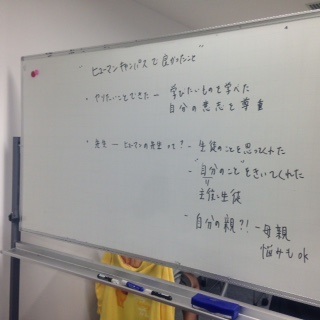 ヒューマンキャンパスで良かったこと
・やりたいことできた ー 学びたいものを学べた
自分の意志を尊重
・先生 ー ヒューマンの先生って? - 生徒のことを思ってくれた
- "自分のこと"をきいてくれた
主役=生徒
- 自分の親?! - 母親
悩みもok